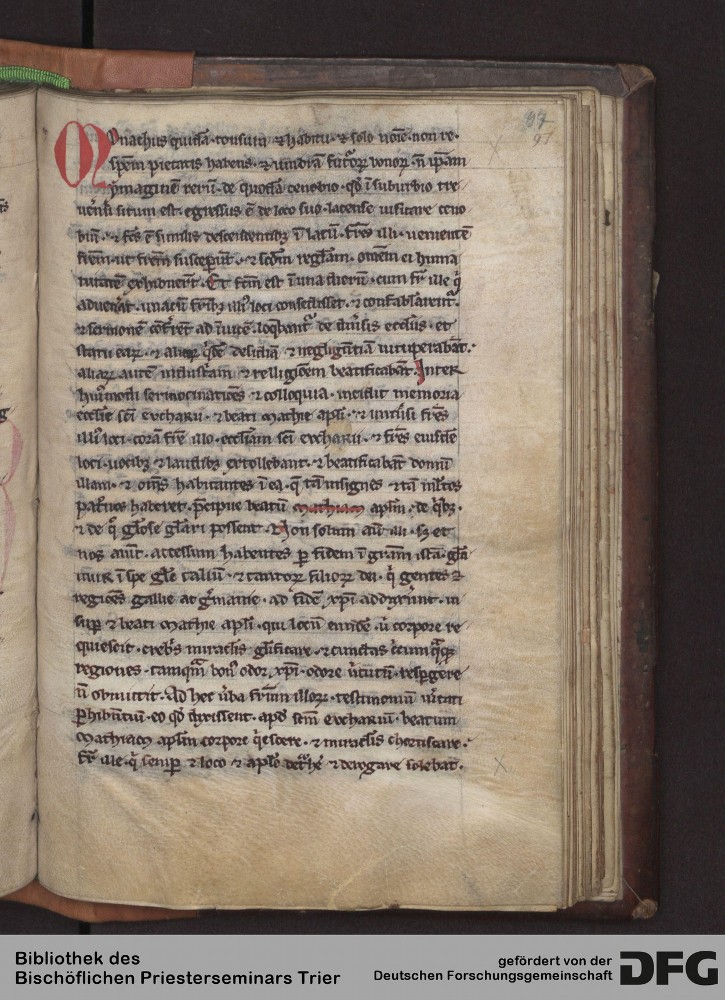 97
97
Monachus quidā. tonsura ⁊ habitu. ⁊ solo noīe. non re.
spēm pietatis habens. ⁊ umbrā futōꝝ bonoꝝ. n̄ ip̄am
ẏmaginē rerū. de quodā cenobio. qd̄ ī suburbio tre
uēnsi situm est. egressus ē de loco suo. lacense uisitare ceno
biū. ⁊ fc̄s ē similis descendentibꝫ ī lacū. fr̄es illi. uenientē
fr̄em. ut fr̄em susceperūt. ⁊ scd̄m regl̄am. om̄em ei huma
nitatē exhibuerūt. Et fc̄m est ī una dierū. cum fr̄ ille q̄
aduenerat. una cū fr̄ibꝫ illiꝰ loci consedisset. ⁊ confabl̄arent̄.
⁊ sermonē cōferret ad īuicē. loq̄bant̄ de diūsis ecclīis. et
statu eaꝝ. ⁊ aliaꝝ q̄dē desidiā ⁊ negligentiā uituperabāt.
aliaꝝ autē industriam ⁊ religionem beatificabāt. Inter
huiꝰmodi sermocinationes ⁊ colloquia. incidit memoria
ecclīe sc̄i eucharii. ⁊ beati mathie apl̄i. ⁊ uniūsi fr̄es
illiꝰ loci. corā fr̄e illo. eccl̄iam sc̄i eucharii. ⁊ fr̄es eiusdē
loci. uocibꝫ ⁊ laudibꝫ extollebant. ⁊ beatificabāt domū
illam. ⁊ om̄s habitantes ī ea. q̄ tā insignes ⁊ tā inclitos
patr̄nos haberet. p̄cipue beatū mathiam apl̄m. de q̄bꝫ.
⁊ de q̄ gl̄ose gl̄ari possent. Non solum aū illi. sꝫ et
nos aiūt. accessum habentes per fidem ī grām istā. gl̄a
mur ī spe gl̄e talium. ⁊ tantoꝝ filioꝝ dei. q̄ gentes ⁊
regiones gallie ac gērmanie. ad fidē xp̄i adduxerunt. in
super ⁊ beati mathie apl̄i. qui locū eundē. ū corpore re
quiescit. crebris miraclis glificare. ⁊ cunctas circum q̄q̄
regiones. tamquā bonꝰ odor xp̄i. odore uirtutū. respergere
n̄ obmittit. Ad hec ūba fr̄um illoꝝ. testimoniū ūitati
perhibentiū. eo qd̄ dixissent. apd̄ sc̄m eucharium. beatum
mathiam apl̄m corpore q̄escere. ⁊ miraclis choruscare.
fr̄ ille. q̄ semper ⁊ loco ⁊ apl̄o detr̄he ⁊ derogare solebat.
Bibliothek des
Bischöflichen Priesterseminars Trier
gefördert von der
Deutschen Forschungsgemeinschaft
DFG